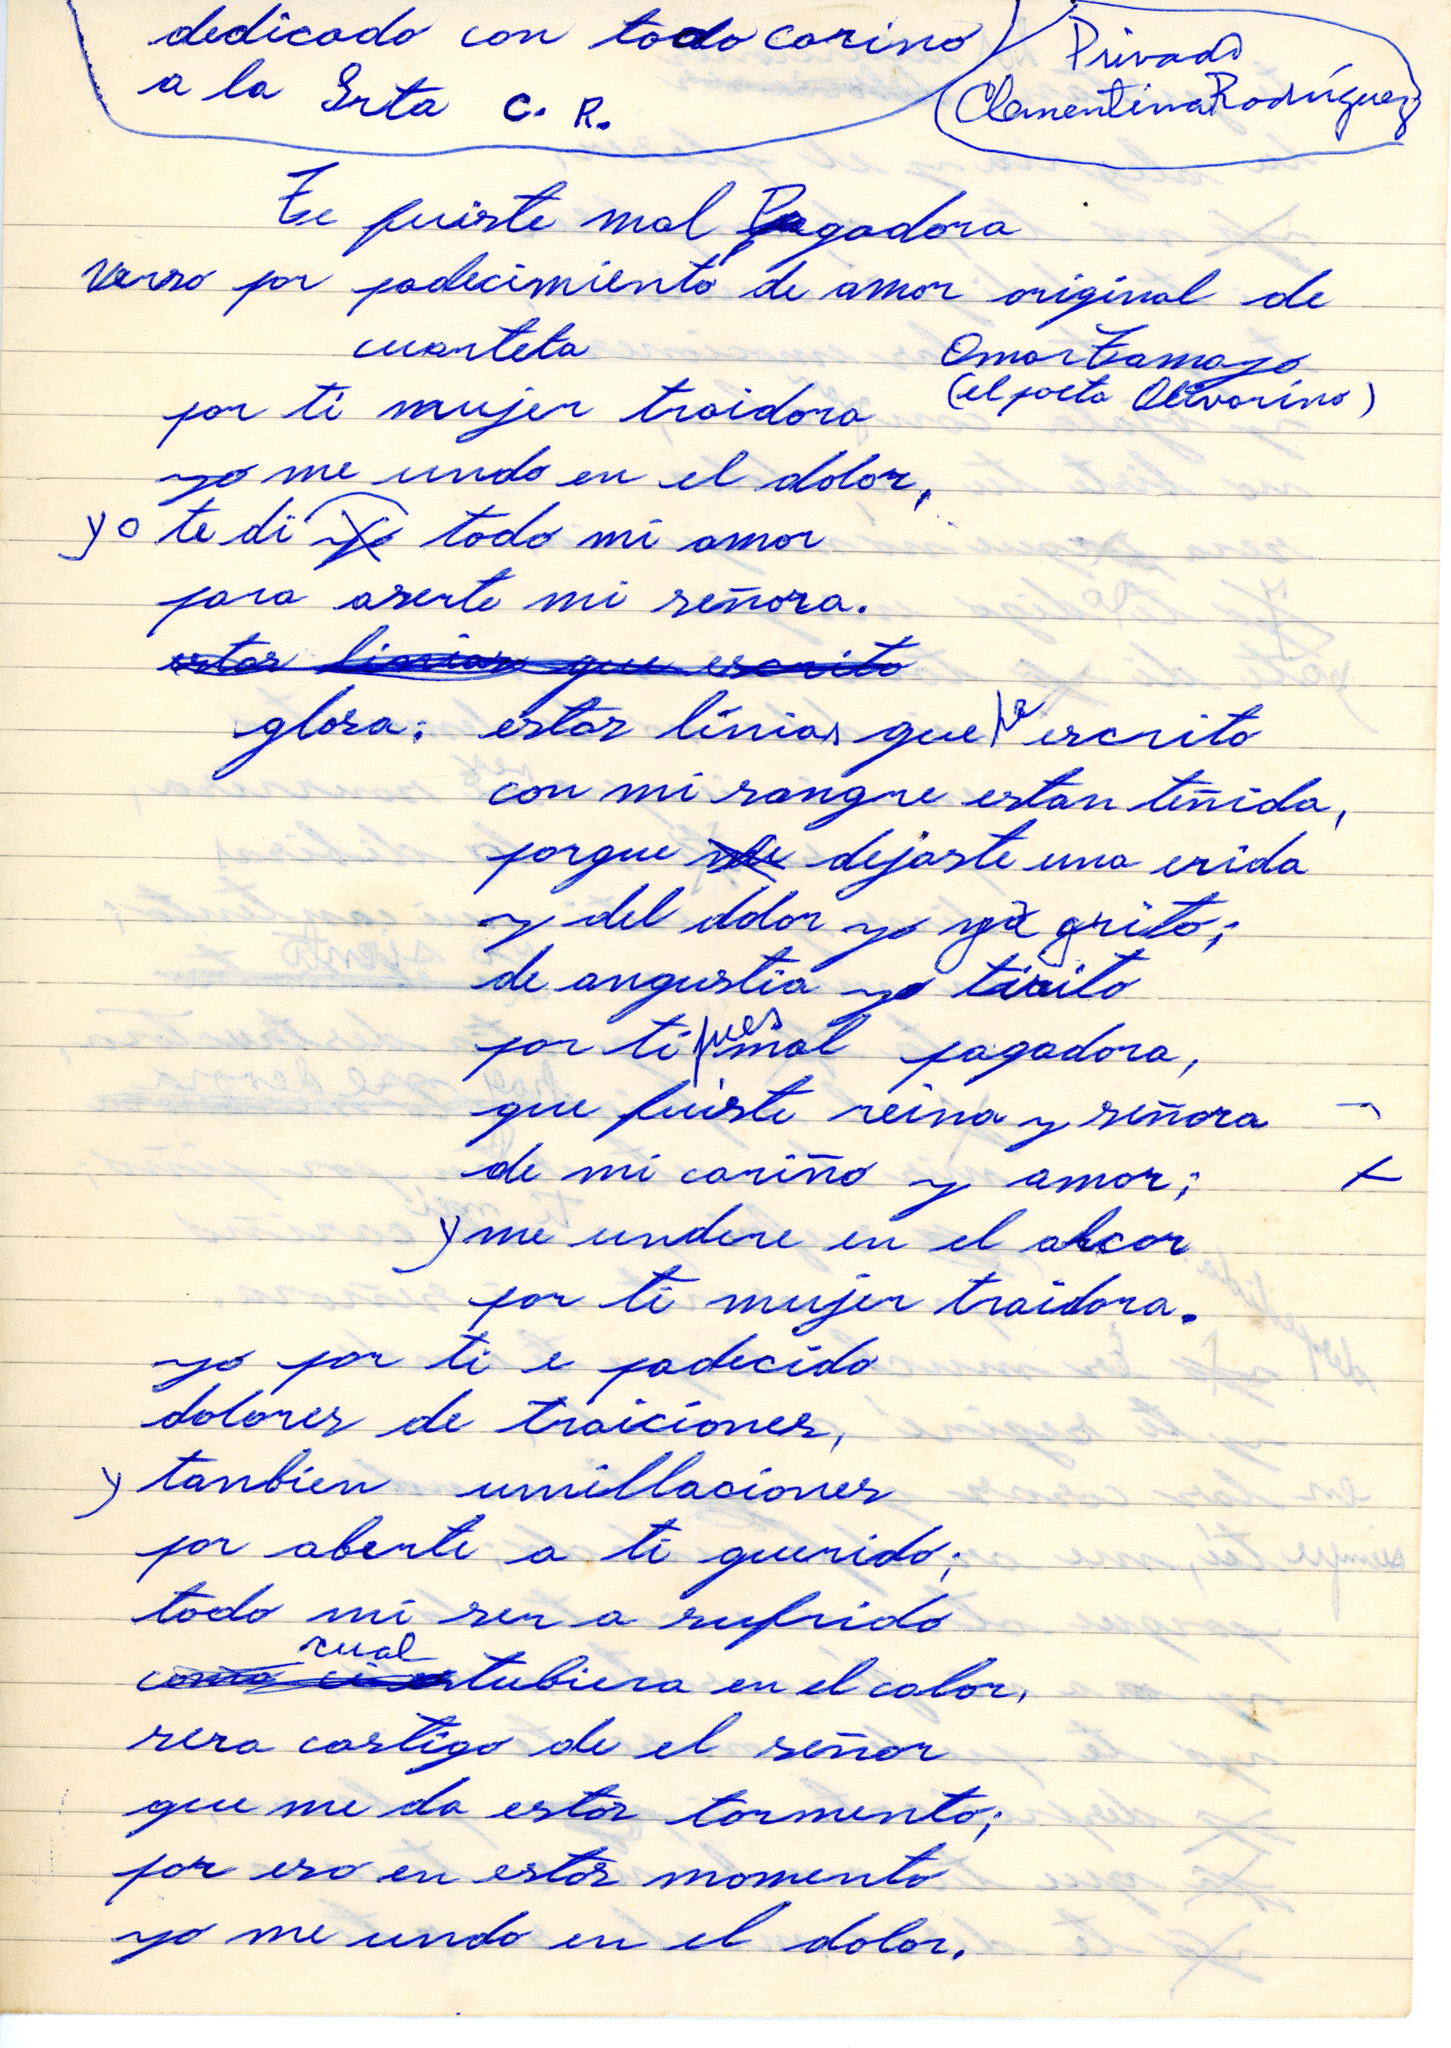 dedicado con todo carino
a la Srta C. R.
Privado
Clementina Rodríguez
Te fuiste mal Pagadora
Verso por padecimiento de amor original de
cuarteta
Omar Tamayo
(el poeta Olivarino)
por ti mujer traidora
yo me undo en el dolor,
yo te di yo todo mi amor
para aserte mi señora.
estas linias que escrito
glosa; estas línias que he escrito
con mi sangre estan teñida,
porque me dejaste una erida
y del dolor yo ya grito;
de angustia yo tirito
por ti pues mal pagadora,
que fuiste reina y señora
de mi cariño y amor;
y me undere en el alcor
por ti mujer traidora.
yo por ti e padecido
dolores de traiciones,
y tanbien umillaciones
por aberte a ti querido;
todo mi ser a sufrido
cual
como si estubiera en el calor,
sera castigo de el señor
que me da estos tormento;
por eso en estos momento
yo me undo en el dolor.